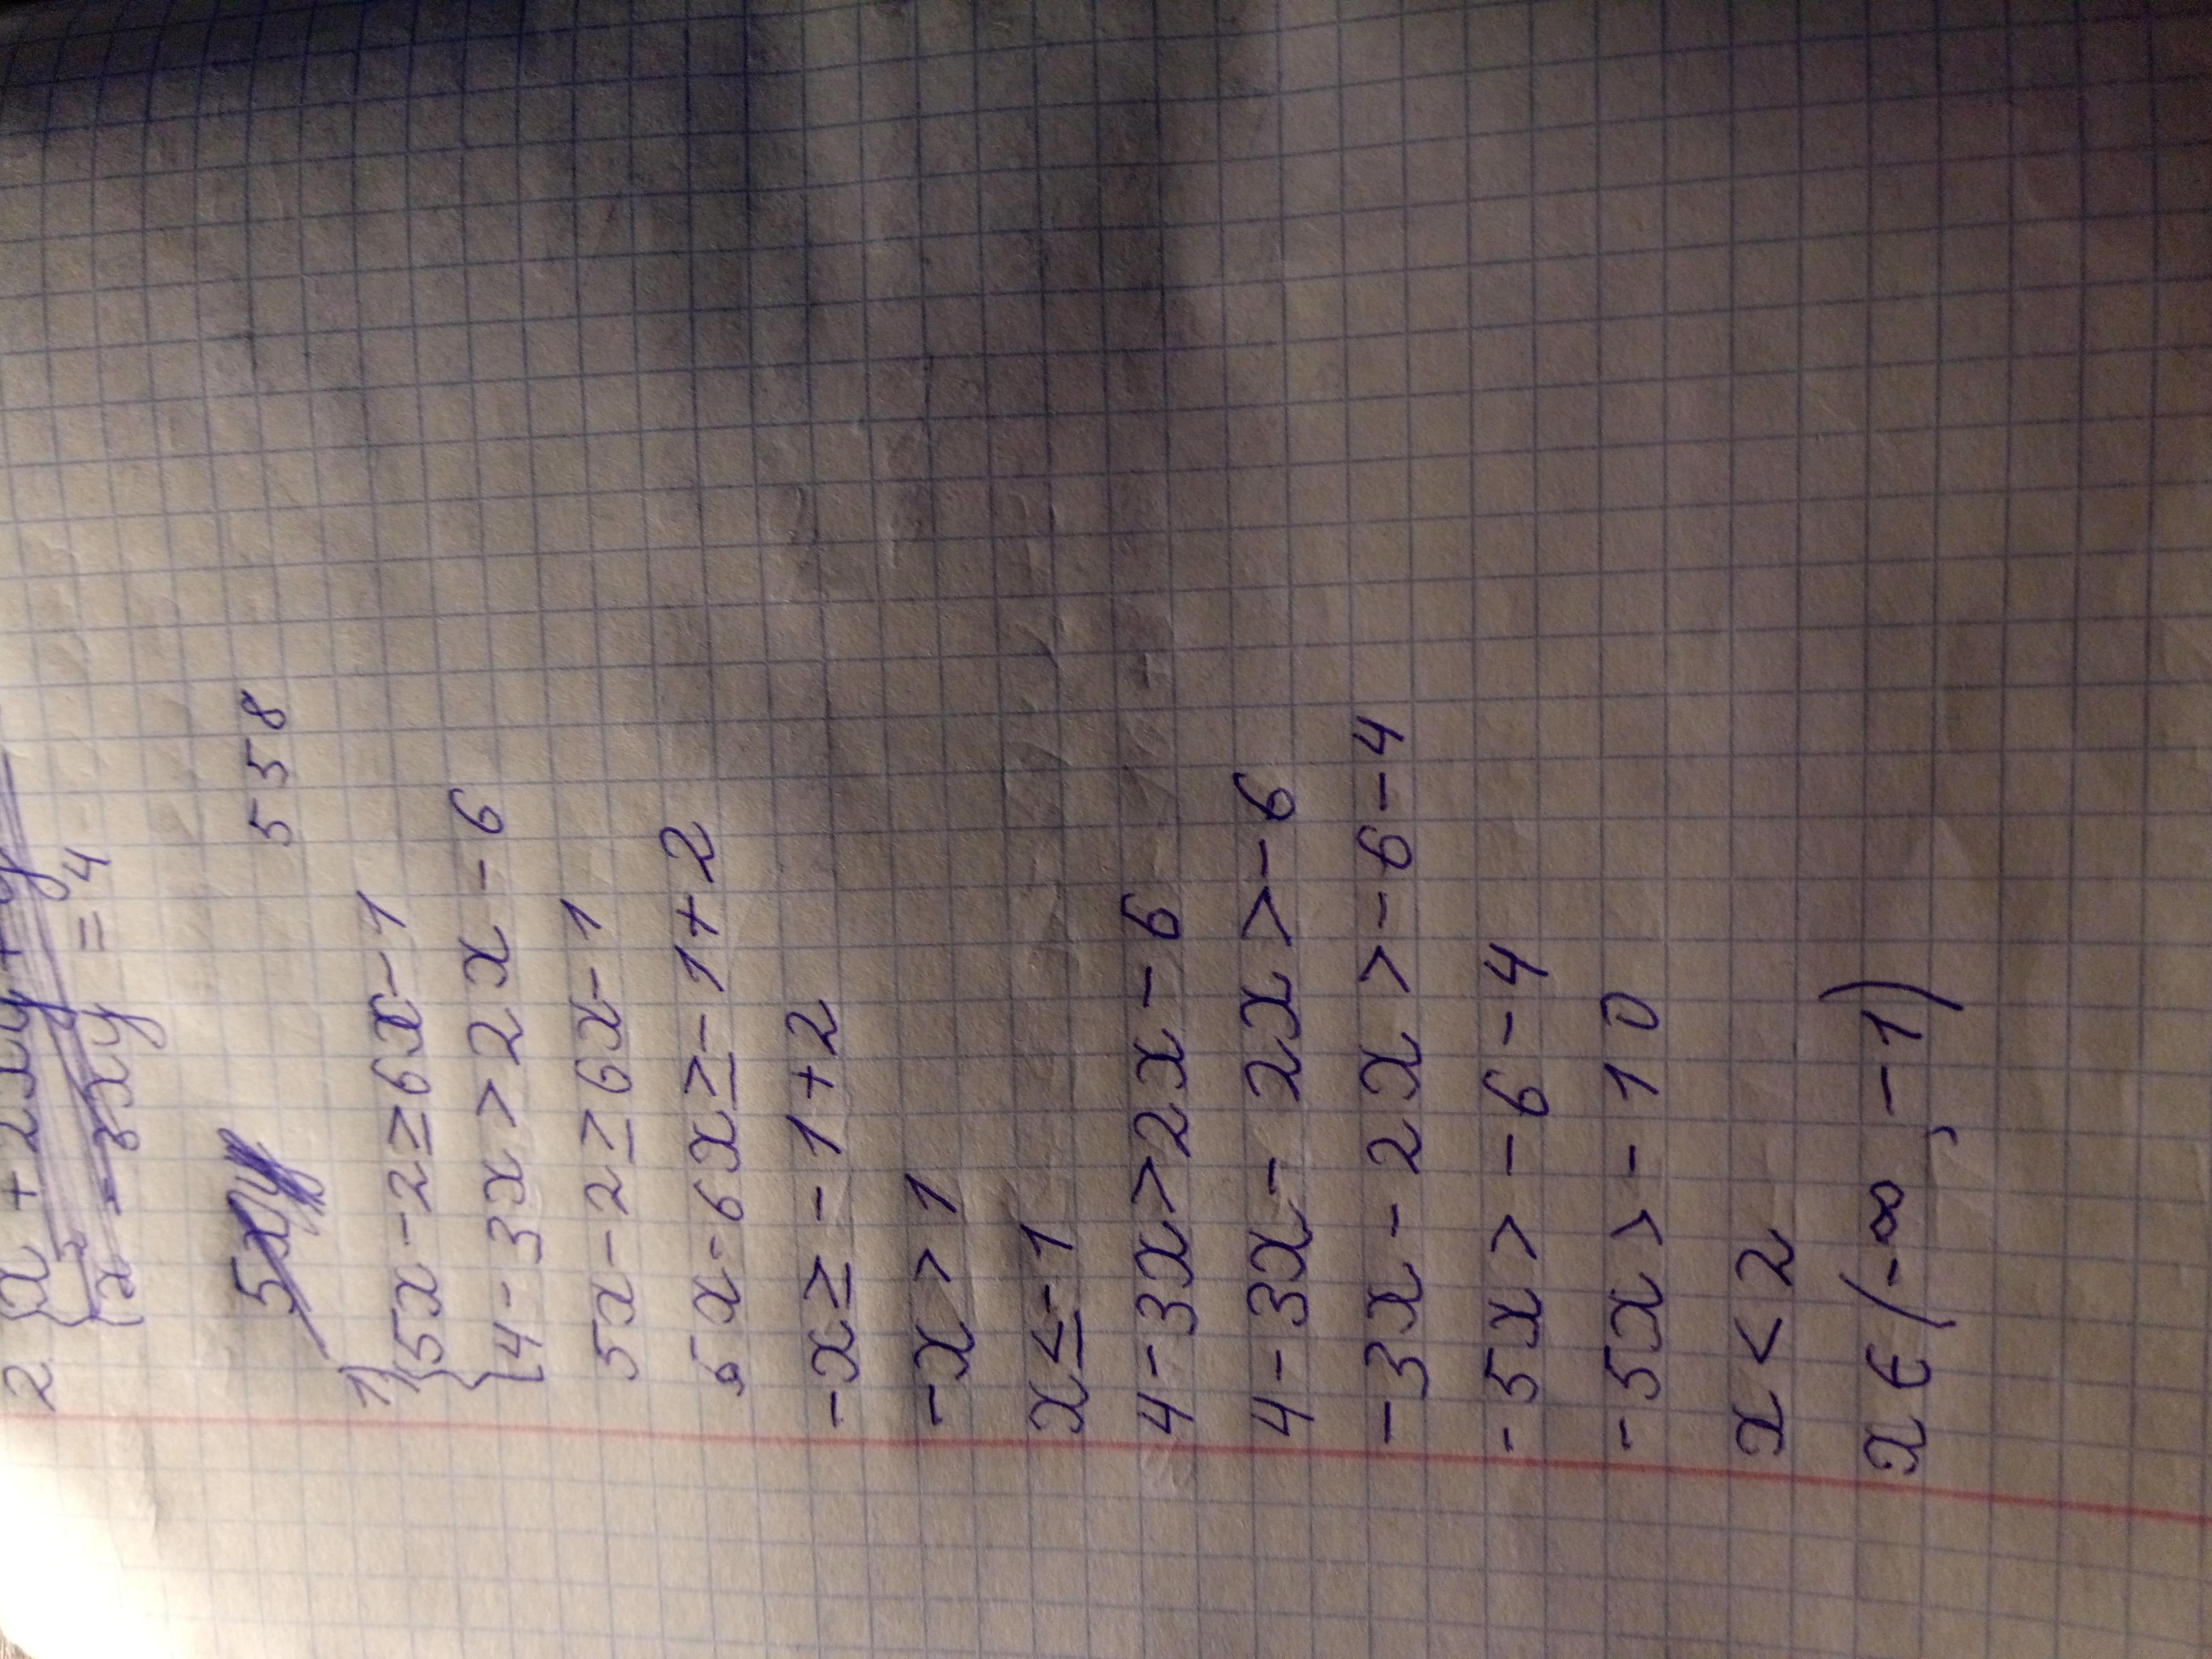 2 {x + 2xy + y
{x - 3xy = 4
5xy 558
1)
{5x-2≥6x-1
{4-3x>2x-6
5x-2≥6x-1
5x-6x≥-1+2
-x≥-1+2
-x>1
x≤-1
4-3x>2x-6
4-3x-2x>-6
-3x-2x>-6-4
-5x>-6-4
-5x>-10
x<2
x∈(-∞,-1)